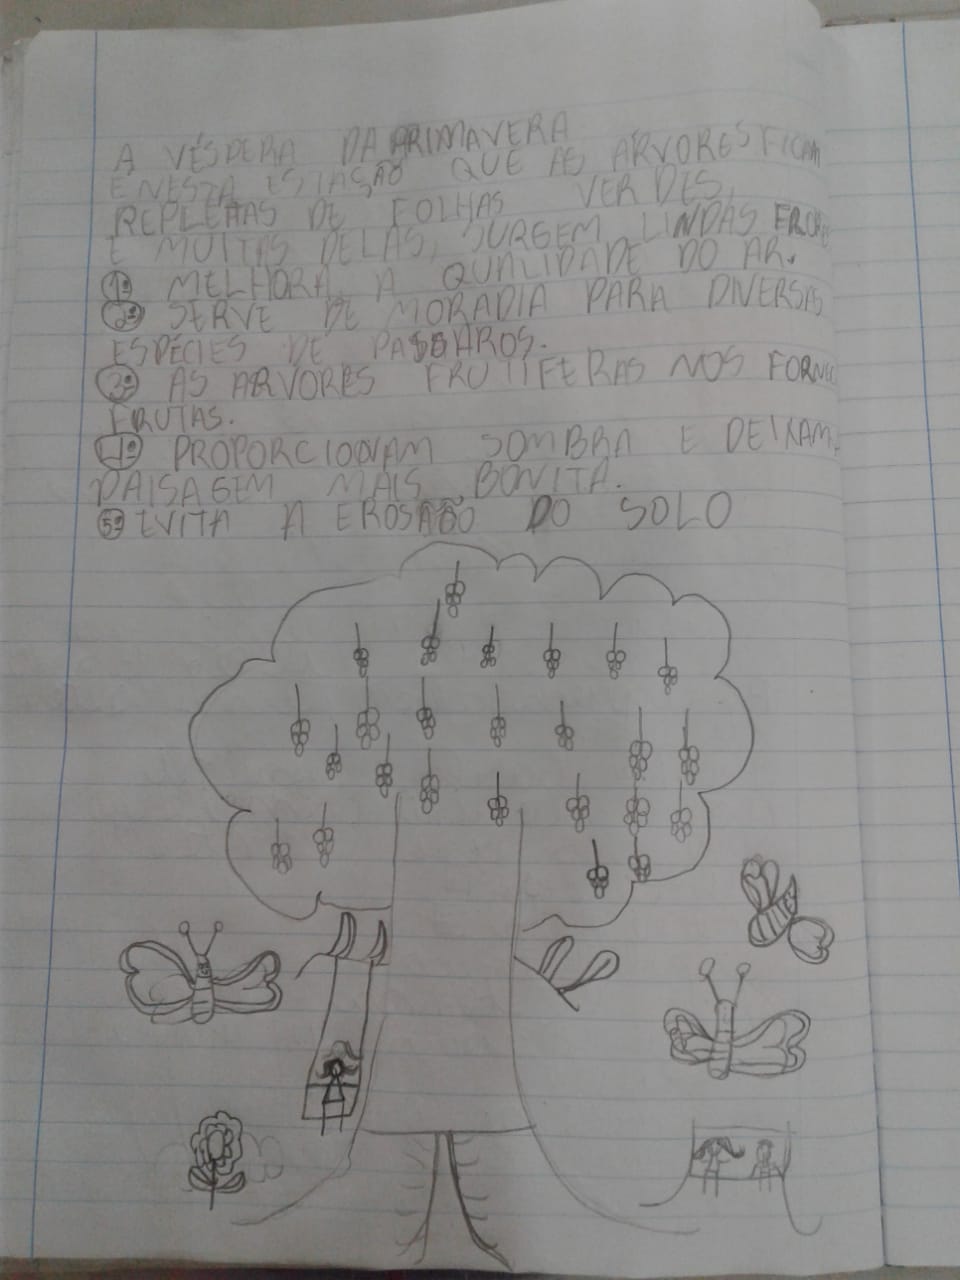 A VÉSPERA DA PRIMAVERA
E NESTA ESTASÃO QUE AS ÁRVORES FICAM
REPLETAS DE FOLHAS VERDES,
E MUITAS DELAS, SURGEM LINDAS FRORES
1º MELHORA A QUALIDADE DO AR.
2º SERVE DE MORADIA PARA DIVERSAS
ESPÉCIES DE PASSAROS.
3º AS ARVORES FRUTIFERAS NOS FORNEC
FRUTAS.
4º PROPORCIONAM SOMBRA E DEIXAM A
PAISAGEM MAIS BONITA.
5º EVITA A EROSÃO DO SOLO